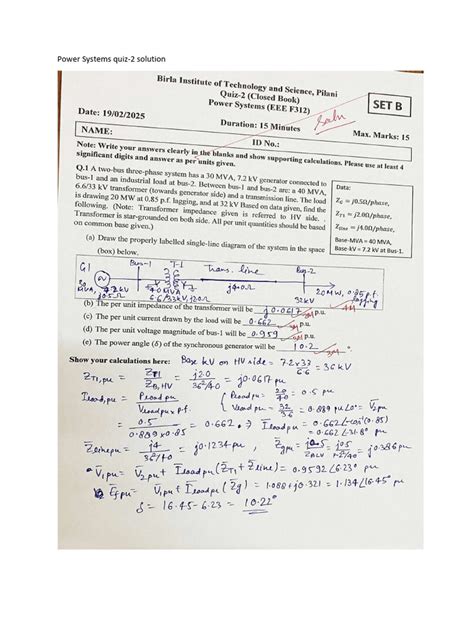 Power Systems quiz-2 solution
Birla Institute of Technology and Science, Pilani
Quiz-2 (Closed Book)
Power Systems (EEE F312)
SET B
Date: 19/02/2025
Duration: 15 Minutes
Max. Marks: 15
NAME:
ID No.:
Note: Write your answers clearly in the blanks and show supporting calculations. Please use at least 4
significant digits and answer as per units given.
Q.1 A two-bus three-phase system has a 30 MVA, 7.2 kV generator connected to
bus-1 and an industrial load at bus-2. Between bus-1 and bus-2 are: a 40 MVA,
6.6/33 kV transformer (towards generator side) and a transmission line. The load
is drawing 20 MW at 0.85 p.f. lagging, and at 32 kV Based on data given, find the
following. (Note: Transformer impedance given is referred to HV side.
Transformer is star-grounded on both side. All per unit quantities should be based
on common base given.)
Data:
Z_G = j0.5Ω/phase,
Z_T1 = j2.0Ω/phase,
Z_line = j4.0Ω/phase,
Base-MVA = 40 MVA,
Base-kV = 7.2 kV at Bus-1.
(a) Draw the properly labelled single-line diagram of the system in the space
(box) below.
G1 Bus-1 T-1 Trans. line Bus-2
j4.0Ω
20MW, 0.85 p.f. lagging
j0.5Ω
6.6/33 kV, j2.0Ω
32kV
(b) The per unit impedance of the transformer will be j0.0617 p.u.
(c) The per unit current drawn by the load will be 0.662 p.u.
(d) The per unit voltage magnitude of bus-1 will be 0.959 p.u.
(e) The power angle (δ) of the synchronous generator will be 10.2
Show your calculations here: Base kV on HV side = 7.2×33/6.6 = 36kV
Z_T1,pu = Z_T1/Z_B,HV = j2.0/36²/40 = j0.0617 pu
I_load,pu = P_load pu/V_load pu × p.f. { P_load pu = 20/40 = 0.5 pu
V_load pu = 32/36 = 0.889 pu∠0° = V̄2pu
= 0.5/0.889×0.85 = 0.662 ⇒ Ī_load pu = 0.662∠-cos⁻¹(0.85)
= 0.662∠-31.8°
Z̄_line pu = j4/36²/40 = j0.1234 pu, Z̄_g pu = j0.5/Z_B,LV = j0.5/7.2²/40 = j0.386 pu
V̄1pu = V̄2pu + Ī_load pu (Z̄_T1 + Z̄_line) = 0.959∠6.23° pu
Ē_f pu = V̄1pu + Ī_load pu (Z̄g) = 1.088 + j0.321 = 1.134∠16.45° pu
δ = 16.45 - 6.23 = 10.22°